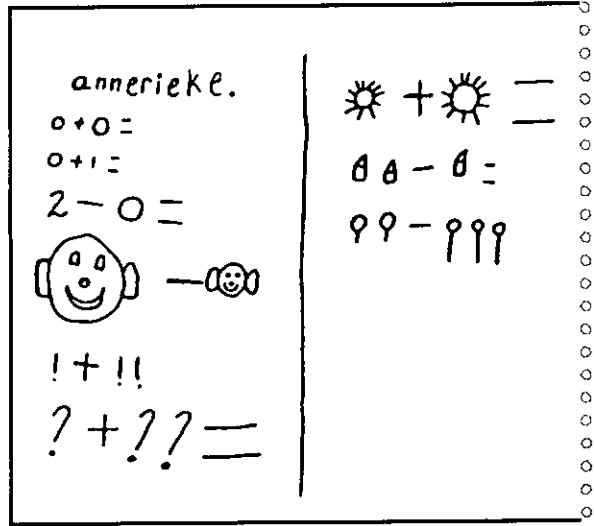 annerieke.
0+0=
0+1=
2-0=
-
!+!!
?+??=
+ =
- =
-